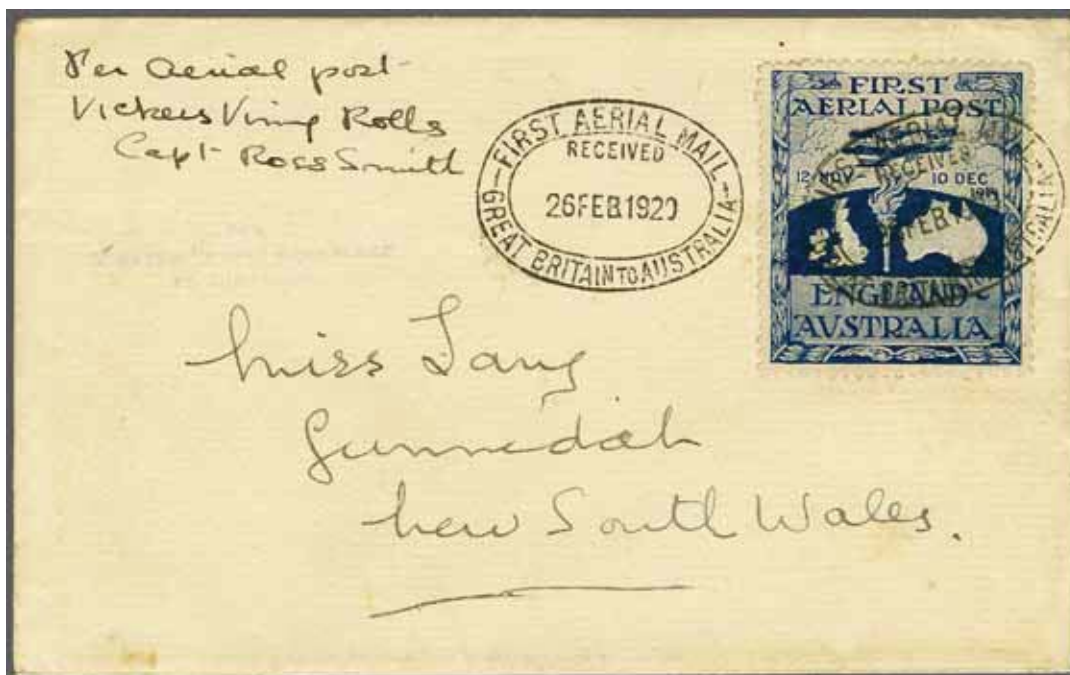 Per Aerial post
Vickers Vimy Rolls
Capt Ross Smith
FIRST AERIAL MAIL
RECEIVED
26FEB1920
GREAT BRITAIN TO AUSTRALIA
FIRST
AERIAL POST
12 NOV - 10 DEC
1919
ENGLAND -
AUSTRALIA
FIRST AERIAL MAIL
RECEIVED
Miss Lang
Gunnedah
New South Wales.